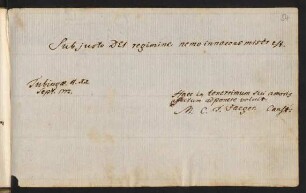 Sub justo DEI regimine nemo innocens miser est.
Tubingæ. d. XI.
Sept. 1772.
Haec in tenerrimum sui amoris
deponere voluit
M. C. F. Jaeger. Canst.